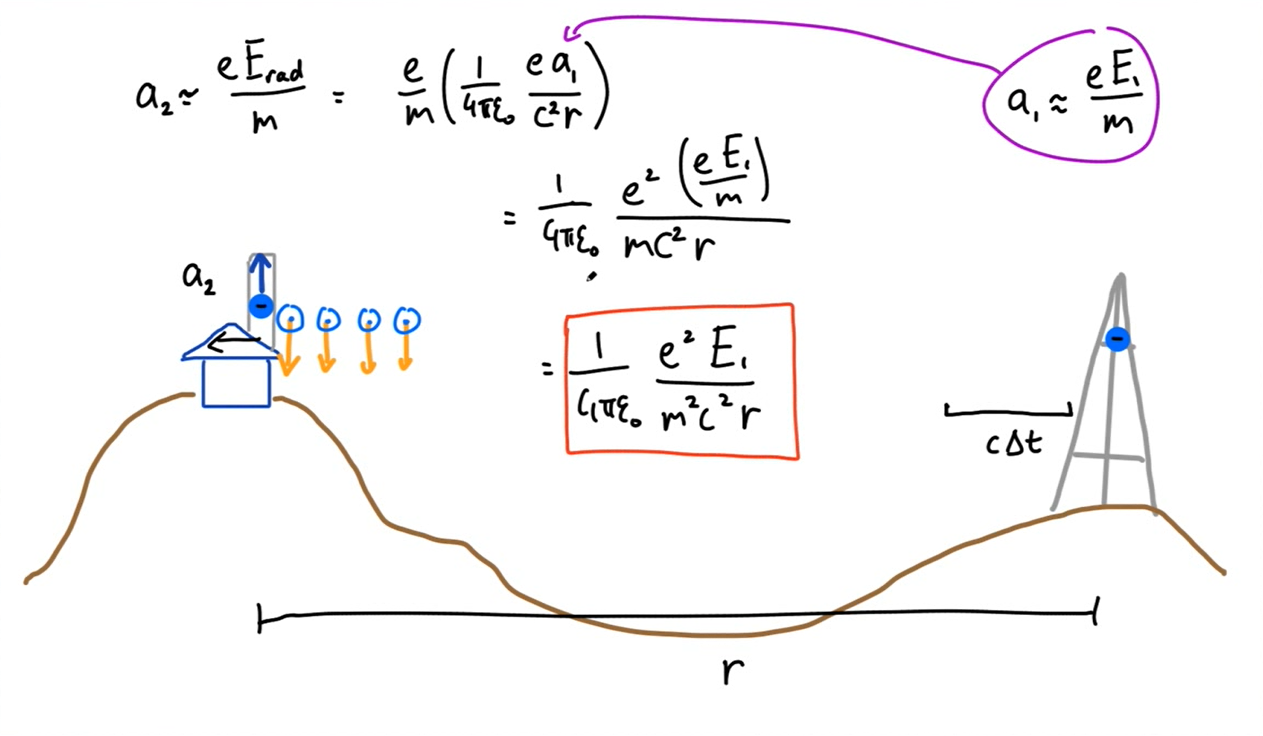 a₂ ≈ eE_rad / m = e/m (1/4πε₀ ea₁/c²r)
a₁ ≈ eE₁ / m
= 1/4πε₀ e² (eE₁/m) / mc²r
a₂
= 1/4πε₀ e² E₁ / m²c²r
cΔt
r